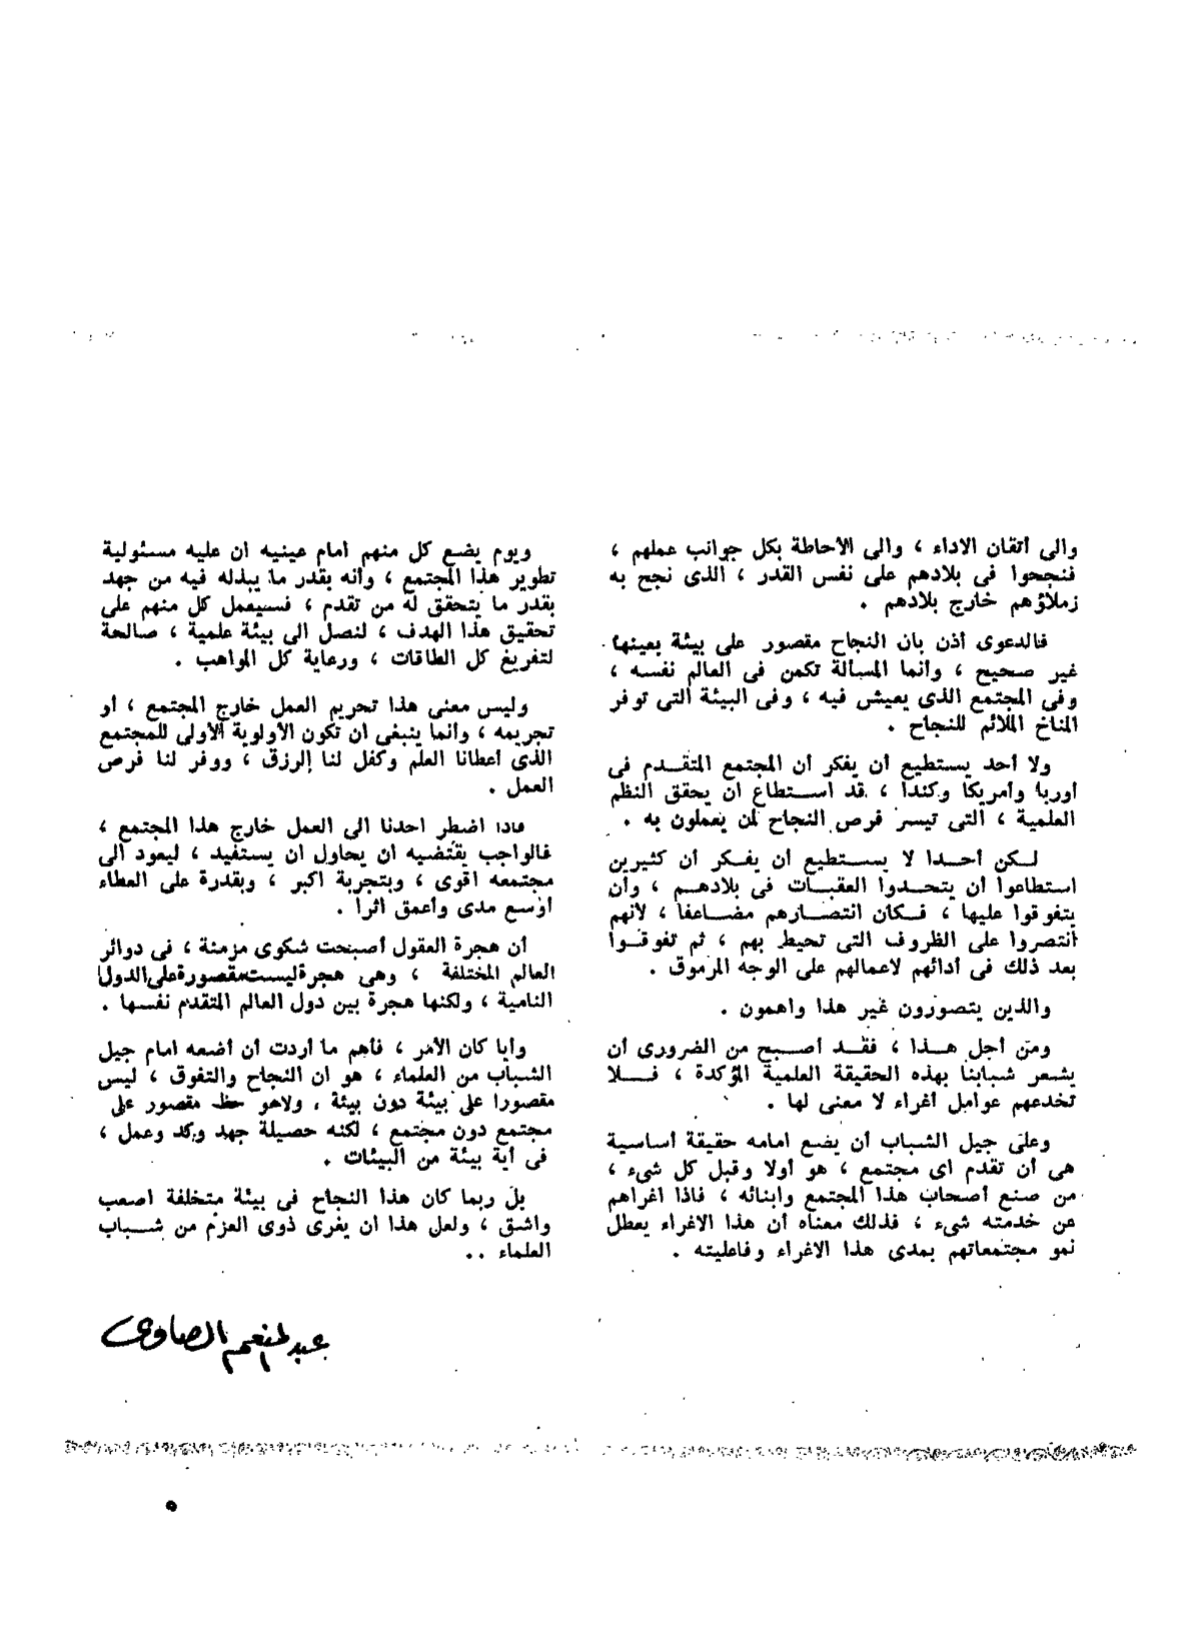 والى أتقان الاداء ، والى الأحاطة بكل جوانب عملهم ،
فنجحوا فى بلادهم على نفس القدر ، الذى نجح به
زملاؤهم خارج بلادهم .
فالدعوى أذن بان النجاح مقصور على بيئة بعينها
غير صحيح ، وأنما المسألة تكمن فى العالم نفسه ،
وفى المجتمع الذى يعيش فيه ، وفى البيئة التى توفر
المناخ الملائم للنجاح .
ولا أحد يستطيع أن يفكر أن المجتمع المتقدم فى
أوربا وأمريكا وكندا ، قد استطاع ان يحقق النظم
العلمية ، التى تيسر فرص النجاح لمن يعملون به .
لكن أحدا لا يستطيع أن يفكر أن كثيرين
استطاعوا أن يتحدوا العقبات فى بلادهم ، وأن
يتفوقوا عليها ، فكان انتصارهم مضاعفا ، لأنهم
انتصروا على الظروف التى تحيط بهم ، ثم تفوقوا
بعد ذلك فى أدائهم لاعمالهم على الوجه المرموق .
والذين يتصورون غير هذا واهمون .
ومن أجل هذا ، فقد أصبح من الضرورى أن
يشعر شبابنا بهذه الحقيقة العلمية المؤكدة ، فلا
تخدعهم عوامل أغراء لا معنى لها .
وعلى جيل الشباب أن يضع امامه حقيقة أساسية
هى أن تقدم اى مجتمع ، هو أولا وقبل كل شىء ،
من صنع أصحاب هذا المجتمع وابنائه ، فاذا اغراهم
عن خدمته شىء ، فذلك معناه أن هذا الاغراء يعطل
نمو مجتمعاتهم بمدى هذا الاغراء وفاعليته .
ويوم يضع كل منهم أمام عينيه ان عليه مسئولية
تطوير هذا المجتمع ، وأنه بقدر ما يبذله فيه من جهد
بقدر ما يتحقق له من تقدم ، فسيعمل كل منهم على
تحقيق هذا الهدف ، لنصل الى بيئة علمية ، صالحة
لتفريغ كل الطاقات ، ورعاية كل المواهب .
وليس معنى هذا تحريم العمل خارج المجتمع ، أو
تجريمه ، وأنما ينبغى ان تكون الأولوية الأولى للمجتمع
الذى أعطانا العلم وكفل لنا الرزق ، ووفر لنا فرص
العمل .
فاذا اضطر احدنا الى العمل خارج هذا المجتمع ،
فالواجب يقتضيه ان يحاول ان يستفيد ، ليعود الى
مجتمعه اقوى ، وبتجربة اكبر ، وبقدرة على العطاء
أوسع مدى وأعمق أثرا .
أن هجرة العقول أصبحت شكوى مزمنة ، فى دوائر
العالم المختلفة ، وهى هجرة ليست مقصورة على الدول
النامية ، ولكنها هجرة بين دول العالم المتقدم نفسها .
وأيا كان الأمر ، فأهم ما أردت أن أضعه امام جيل
الشباب من العلماء ، هو ان النجاح والتفوق ، ليس
مقصورا على بيئة دون بيئة ، ولاهو حظ مقصور على
مجتمع دون مجتمع ، لكنه حصيلة جهد وكد وعمل ،
فى أية بيئة من البيئات .
بل ربما كان هذا النجاح فى بيئة متخلفة اصعب
واشق ، ولعل هذا ان يغرى ذوى العزم من شباب
العلماء ..
عبد المنعم الصاوى
٥